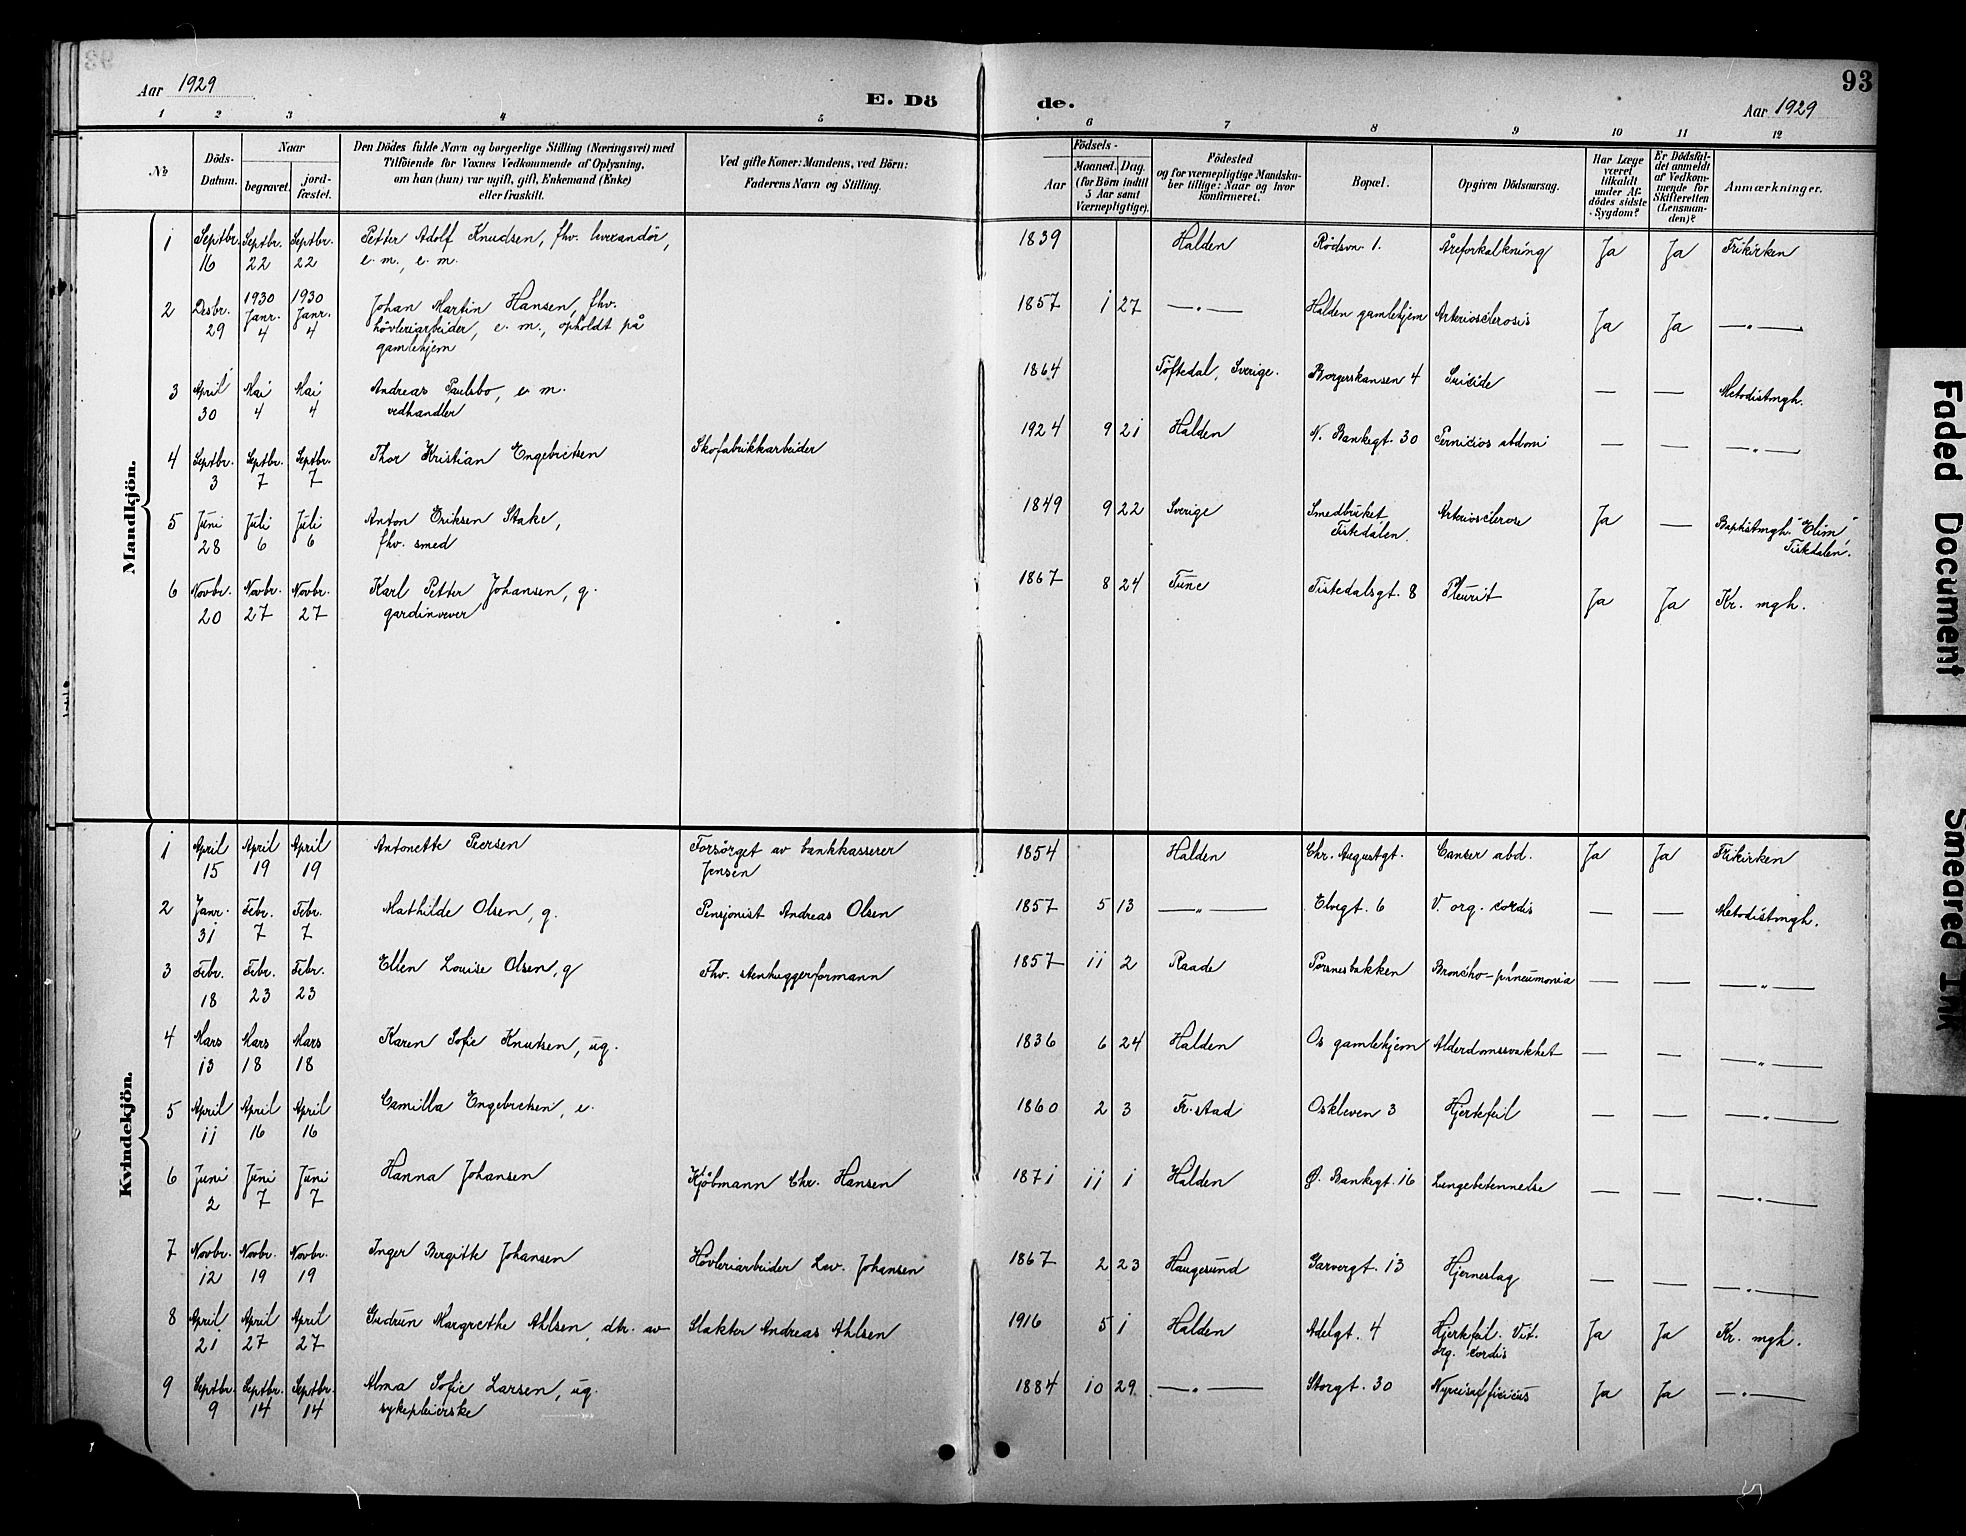 Aar 1929
E. Dö
de.
93
Aar 1929
1 2 3 4 5 6 7 8 9 10 11 12
№
Döds-Datum.
Naar
begravet.
jord-fæstet.
Den Dödes fulde Navn og borgerlige Stilling (Næringsvei) med
Tilföiende for Voxnes Vedkommende af Oplysning,
om han (hun) var ugift, gift, Enkemand (Enke)
eller fraskilt.
Ved gifte Koner: Mandens, ved Börn:
Faderens Navn og Stilling.
Födsels-
Aar
Maaned. Dag.
(for Börn indtil
5 Aar samt
Værnepligtige).
Födested
og for værnepligtige Mandska-
ber tillige: Naar og hvor
konfirmeret.
Bopæl.
Opgiven Dödsaarsag.
Har Læge
været
tilkaldt
under Af-
dödes sidste
Sygdom?
Er Dödsfal-
det anmeldt
af Vedkom-
mende for
Skifteretten
(Lensman-
den)?
Anmærkninger.
Mandkjön.
1 Septbr. 16 Septbr. 22 Septbr. 22 Petter Adolf Knudsen, fhv. leverandör, e. m., e. m. 1839 Halden Rödsvn. 1. Åreforkalkning Ja Ja Frikirken
2 Desbr. 29 1930 Janr. 4 1930 Janr. 4 Johan Martin Hansen, fhv. hövleriarbeider, e. m., opholdt på gamlehjem 1857 1 27 —"— Halden gamlehjem Arteriosclerosis Ja Ja —"—
3 April 30 Mai 4 Mai 4 Andreas Paulsbo, e. m. vedhandler 1864 Töftedal, Sverige. Borgerskansen 4 Suicide — — Metodistmgh.
4 Septbr. 3 Septbr. 7 Septbr. 7 Thor Kristian Engebretsen Skofabrikkarbeider 1924 9 21 Halden N. Bankegt. 30 Pernicios abdomi — — —"—
5 Juni 28 Juli 6 Juli 6 Anton Eriksen Stake, fhv. smed 1849 9 22 Sverige Smedbruket Tistedalen. Arteriosclerose Ja — Baptistmgh. "Elim", Tistedalen.
6 Novbr. 20 Novbr. 27 Novbr. 27 Karl Petter Johansen, g. gardinvever 1867 8 24 Tune Tistedalsgt. 8 Pleurit Ja Ja Kr. mgh.
Kvindekjön.
1 April 15 April 19 April 19 Antonette Peersen Forsörget av bankkasserer Jensen 1854 Halden Chr. Augustgt. Canser abd. Ja Ja Frikirken
2 Janr. 31 Febr. 7 Febr. 7 Mathilde Olsen, g. Pensjonist Andreas Olsen 1857 5 13 —"— Elvegt. 6 V. org. cordis — — Metodistmgh.
3 Febr. 18 Febr. 23 Febr. 23 Ellen Louise Olsen, g Fhv. stenhuggerformann 1857 11 2 Raade Porsnesbakken Broncho-pneumonia — — —"—
4 Mars 13 Mars 18 Mars 18 Karen Sofie Knutsen, ug. 1836 6 24 Halden Os gamlehjem Alderdomssvakhet — — —"—
5 April 11 April 16 April 16 Camilla Engebretsen, e. 1860 2 3 Fr.stad Oskleven 3 Hjertefeil — — —"—
6 Juni 2 Juni 7 Juni 7 Hanna Johansen Kjöbmann Chr. Hansen 1871 11 1 Halden Ø. Bankegt. 16 Lungebetennelse — — —"—
7 Novbr. 12 Novbr. 19 Novbr. 19 Inger Bergitte Johansen Hövleriarbeider Lav. Johansen 1867 2 23 Haugesund Garvergt. 13 Hjerneslag — — —"—
8 April 21 April 27 April 27 Gudrun Margrethe Ahlsen, dtr. av Slakter Andreas Ahlsen 1916 5 1 Halden Adelgt. 4 Hjertefeil. Vit. org. cordis Ja Ja Kr. mgh.
9 Septbr. 9 Septbr. 14 Septbr. 14 Alma Sofie Larsen, ug. sykepleierske 1884 10 29 —"— Storgt. 30 Ja Ja —"—
Faded Document
Smeared Ink